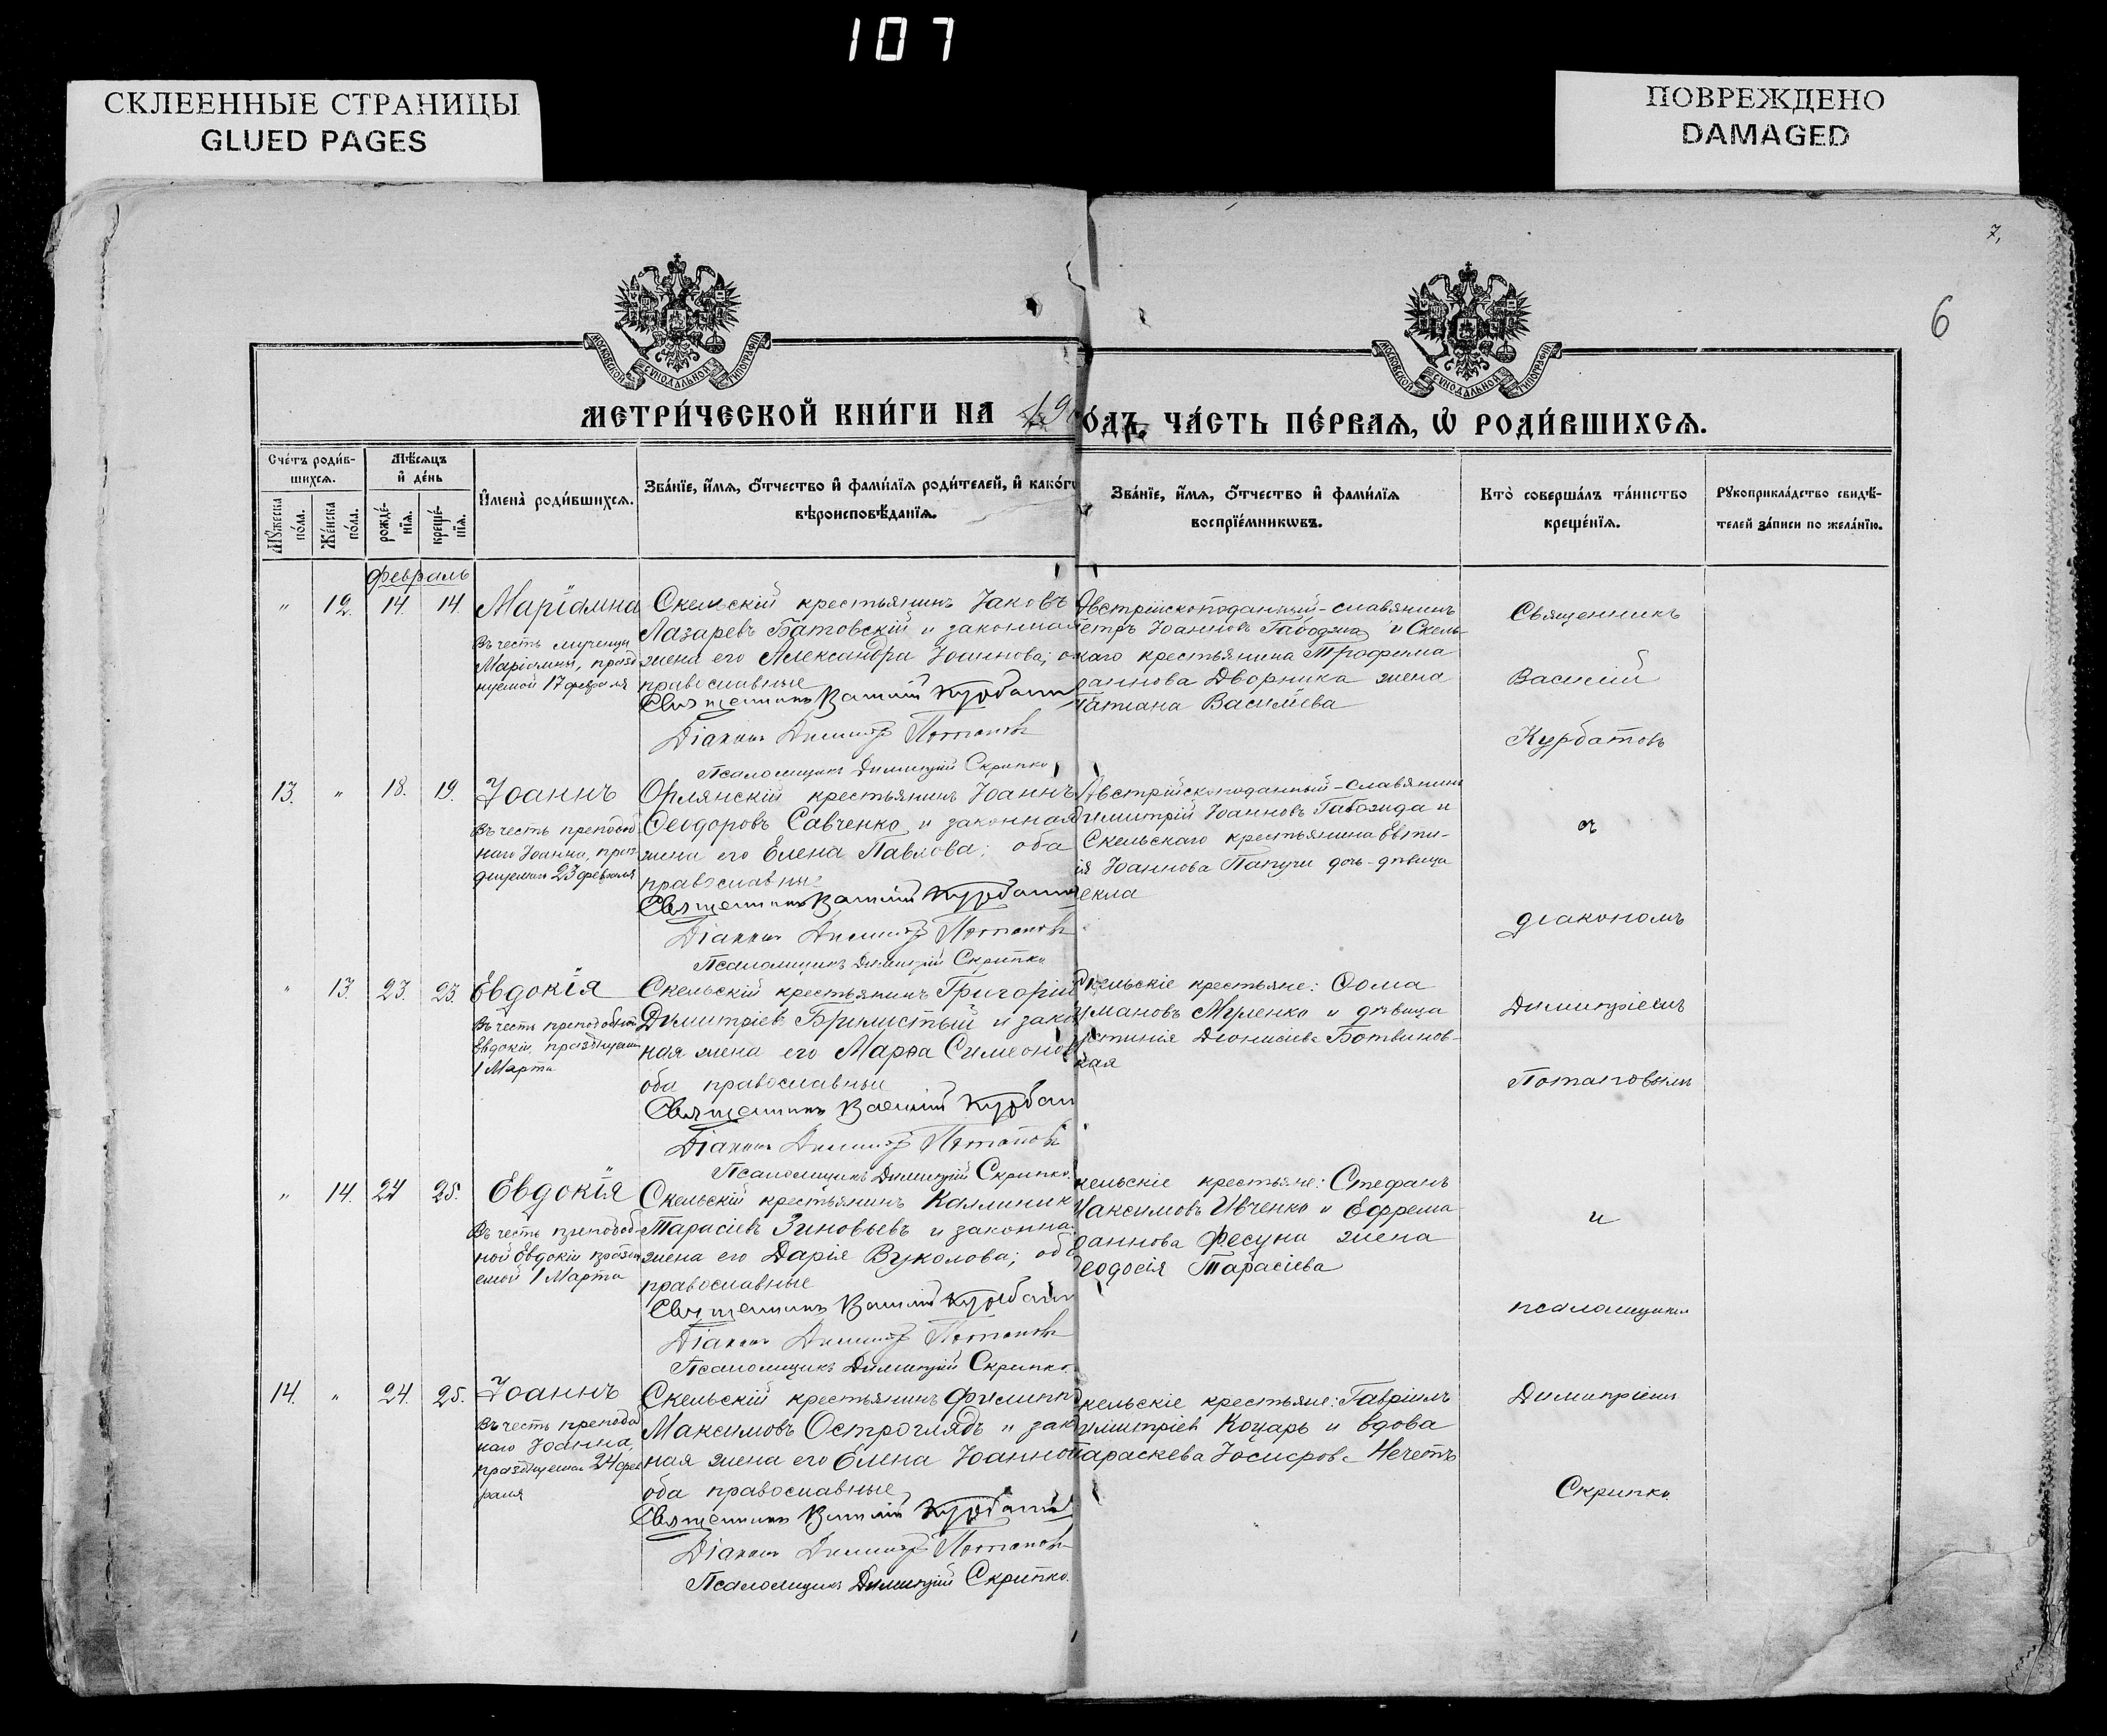 107
СКЛЕЕННЫЕ СТРАНИЦЫ
GLUED PAGES
ПОВРЕЖДЕНО
DAMAGED
7,
6
МОСКОВСКОЙ СѴНОДАЛЬНОЙ ТИПОГРАФІИ
МОСКОВСКОЙ СѴНОДАЛЬНОЙ ТИПОГРАФІИ
МЕТРИ́ЧЕСКОЙ КНИ́ГИ НА 19
О́ДЪ, ЧА́СТЬ ПЕ́РВАѦ, Ѡ҆ РОДИ́ВШИХСѦ.
Сче́тъ роди́в-
шихсѧ.
Мꙋ́жеска по́ла.
Же́нска по́ла.
Мѣ́сѧцъ
и҆ де́нь
рожде́-нїѧ.
креще́-нїѧ.
И҆мена̀ роди́вшихсѧ.
Зва́нїе, и҆́мѧ, ѻ҆́тчество и҆ фами́лїѧ роди́телей, и҆ како́г
вѣроисповѣ́данїѧ.
Зва́нїе, и҆́мѧ, ѻ҆́тчество и҆ фами́лїѧ
воспрїе́мникѡвъ.
Кто̀ соверша́лъ та́инство
креще́нїѧ.
Рꙋкоприкла́дство свидѣ́-
телей за́писи по жела́нїю.
Февраль
" 12. 14. 14. Маріамна
Въ честь мученицы
Маріамны, празд
нуемой 17 февраля
Скельскій крестьянинъ Іаковъ
Лазаревъ Батовскій и законная
жена его Александра Іоаннова; о
православные
Священникъ Василій Курбатовъ
Діаконъ Димитрій Потаповъ
Псаломщикъ Димитрій Скрипко
Австрійскоподанный-славянинъ
етръ Іоанновъ и Скель-
каго крестьянина Трофима
оаннова Дворника жена
Татіана Василіева
13. " 18. 19. Іоаннъ
Въ честь преподоб
наго Іоанна, праз
днуемаго 23 февраля
Орлянскій крестьянинъ Іоаннъ
Ѳеодоровъ Савченко и законная
жена его Елена Павлова; оба
православные
Священникъ Василій Курбатовъ
Діаконъ Димитрій Потаповъ
Псаломщикъ Димитрій Скрипко
Австрійскоподанный-славянинъ
имитрій Іоанновъ и
Скельскаго крестьянина Евѳи-
ія Іоаннова Папучи дочь-дѣвица
екла
" 13. 23. 23. Евдокія
Въ честь преподобной
Евдокіи, празднуемой
1 Марта
Скельскій крестьянинъ Григорій
Димитріевъ и закон
ная жена его Марѳа Симеонов
оба православные
Священникъ Василій Курбат
Діаконъ Димитрій Потаповъ
Псаломщикъ Димитрій Скрипко.
Скельскіе крестьяне: Ѳома
и дѣвица
стинія Діонисіева Ботвинов-
кая
" 14. 24 25. Евдокія
Въ честь преподоб-
ной Евдокіи праздну
емой 1 Марта
Скельскій крестьянинъ Каллиник
Тарасіевъ Зиновьевъ и законна
жена его Дарія Вуколова; об
православные
Священникъ Василій Курбатов
Діаконъ Димитрій Потаповъ
Псаломщикъ Димитрій Скрипко.
кельскіе крестьяне: Стефанъ
Максимовъ Ивченко и Ефрема
оаннова Фесуна жена
еодосія Тарасіева
14. " 24. 25. Іоаннъ
Въ честь преподоб
наго Іоанна,
празднуемаго 24 фев
раля
Скельскій крестьянинъ Филипп
Максимовъ Остроглядъ и зак
ная жена его Елена Іоанно
оба православные
Священникъ Василій Курбатовъ
Діаконъ Димитрій Потаповъ
Псаломщикъ Димитрій Скрипко.
кельскіе крестьяне: Гавріилъ
имитріевъ Коцарь и вдова
Параскева Іосифова Нечетъ
Священникъ
Василій
Курбатовъ
съ
діакономъ
Димитріемъ
Потаповымъ
и
псаломщикомъ
Димитріемъ
Скрипко.